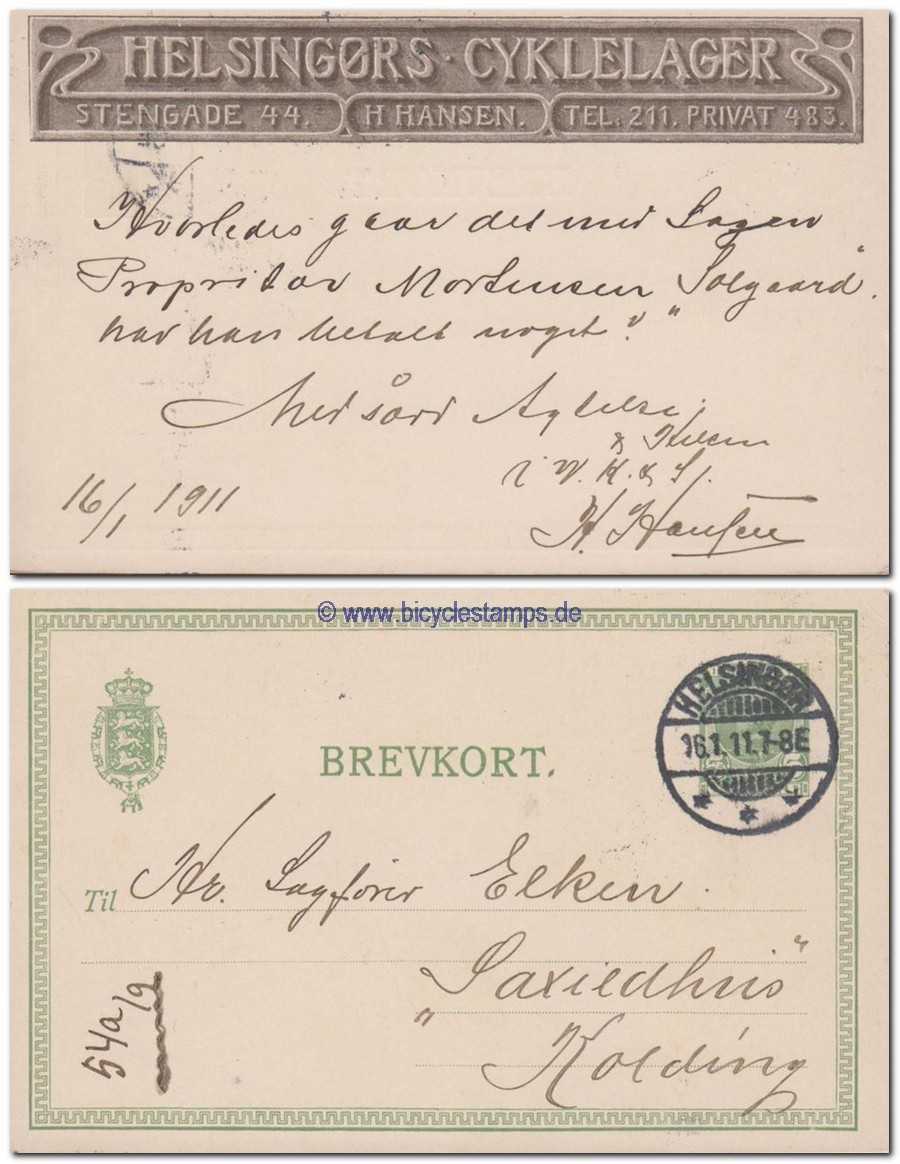 HELSINGØRS · CYKLELAGER
STENGADE 44. H HANSEN. TEL: 211. PRIVAT 483.
Hvorledes gaar det med Sagen
Propritær Mortensen "Solgaard".
har han betalt noget?
Med særd Agtelse
i
H. Hansen
16/1 1911
© www.bicyclestamps.de
BREVKORT.
HELSINGØR
16.1.11.7-8E
Til Hr. Sagfører Elken.
"Saxiedhuis"
Kolding
54a/9